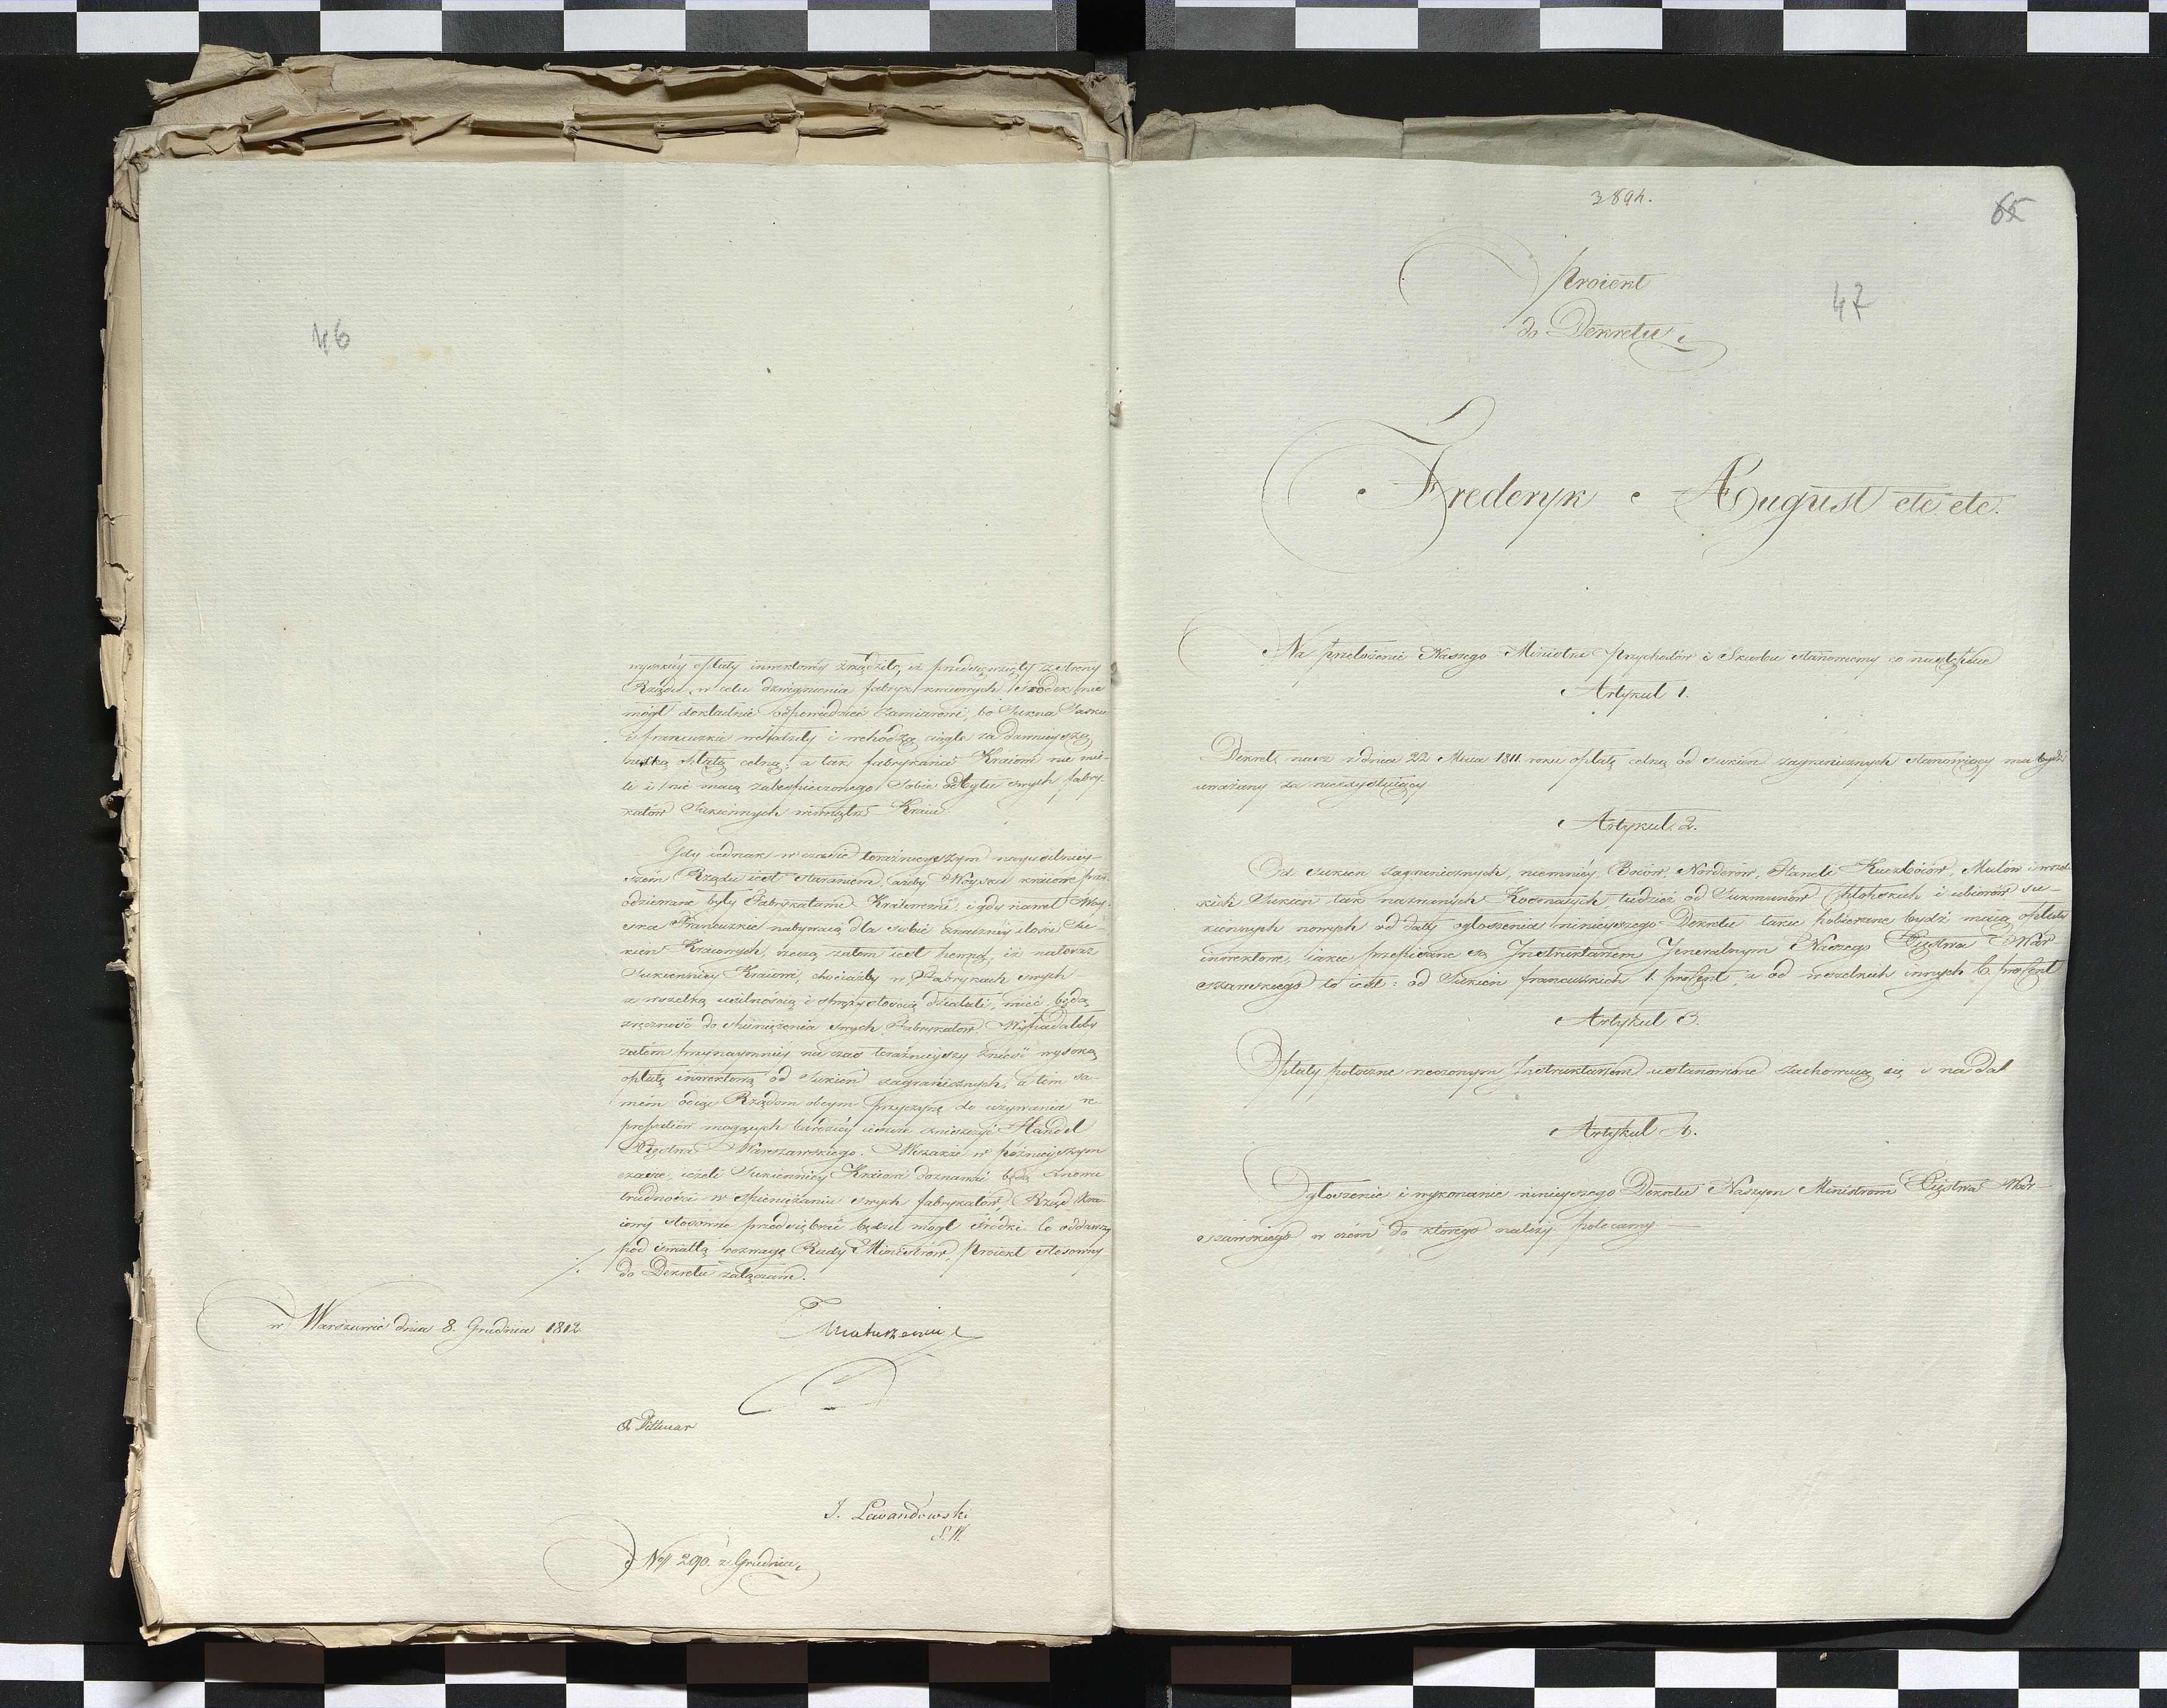 46
wysokiéy opłaty inwektowéy zrządziło, iż przedsięwzięty ze strony
Rządu w celu dzwignienia fabryk kraiowych środek, nie
mógł dokładnie odpowiedzieć zamiarowi, bo Sukna Saskie
i francuzkie wchodziły i wchodzą ciągle za dawnieyszą
nizką opłatą celną; a tak fabrykanci Kraiowi nie mie-
li i nie maią zabespieczonego sobie odbytu swych fabry-
katów Sukiennych wewnątrz Kraiu.
Gdy iednak w czasie teraźnieyszym nayusilniey-
szém Rządu iest staraniem, ażeby Woyska kraiowe przy-
odziewane były Fabrykatami Kraiowemi, i gdy nawet Woy-
ska Francuzkie nabywaią dla siebie znaczney ilości Su-
kien Kraiowych, rzeczą zatem iest pewną, iż nateraz
Sukiennicy Kraiowi, chociażby w Fabrykach swych
z wszelką usilnością i sprężystością działali, mieć będą
zręczność do spieniężenia swych Fabrykatów. Wypadałoby
zatém przynaymniéy na czas teraźnieyszy znieść wysoką
opłatę inwektową od Sukien zagranicznych, a tém sa-
mém odiąć Rządom obcym przyczynę do używania re-
pressaliów mogących bardziéy ieszcze zniszczyć Handel
Xięstwa Warszawskiego. Wszakże w późnieyszym
czasie, ieżeli Sukiennicy Kraiowi doznawać będą znowu
trudności w spieniężaniu swych fabrykatów, Rząd Kra-
iowy stosowne przedsiębrać będzie mógł środki. Co oddawszy
pod światłą rozwagę Rady Ministrów, Proiekt stosowny
do Dekretu załączam.
w Warszawie dnia 8. Grudnia 1812
Matuszewic
Dittmar
J. Lewandowski
N° 290. z Grudnia
3894.
65
47
Proiekt
do Dekretu
Frederyk August etc etc.
Na przełożenie Naszego Ministra Przychodów i Skarbu stanowiemy co następuie
Artykuł 1.
Dekret nasz z dnia 22 Maia 1811 roku opłatę celną od sukien zagranicznych stanowiący ma bydź
uważany za nieexystuiący
Artykuł 2.
Od sukien zagranicznych, niemniéy Boiów, Korderów, Flaneli, Kuczboiów, Multów i wszel-
kich Sukien tak nazwanych Kosmatych, tudzież od Sukmanów Chłopskich i ubiorów su-
kiennych nowych od daty ogłoszenia ninieyszego Dekretu takie pobierane bydź maią opłaty
inwektowe, iakie przepisane są Instruktarzem Jeneralnym Naszego Xięstwa War-
szawskiego to iest: od Sukien francuzkich 1. procent, a od wszelkich innych 6. procent
Artykuł 3.
Opłaty poboczne rzeczonym Instruktarzem ustanowione zachowuią się i nadal
Artykuł 4.
Ogłoszenie i wykonanie ninieyszego Dekretu Naszym Ministrom Xięstwa War-
szawskiego w czém do którego należy polecamy